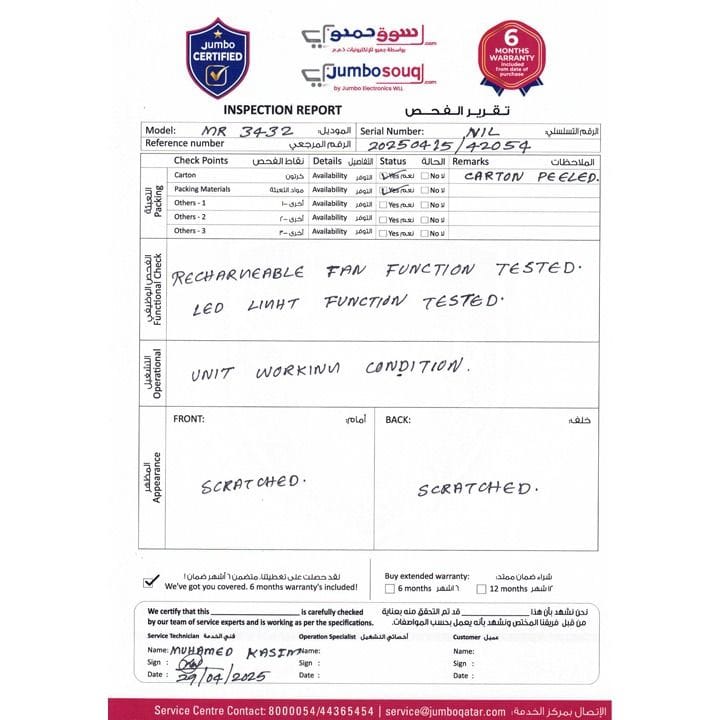 Jumbo
CERTIFIED
سوق جمبو.com
بواسطة جمبو للإلكترونيات ذ.م.م
Jumbosouq.com
by Jumbo Electronics WLL
6
MONTHS
WARRANTY
included
from date of
purchase
INSPECTION REPORT تقرير الفحص
Model: MR 3432 الموديل: Serial Number: NIL الرقم التسلسلي:
Reference number 20250415/42054 الرقم المرجعي
Check Points نقاط الفحص Details التفاصيل Status الحالة Remarks الملاحظات
Carton كرتون Availability التوفر Yes نعم No لا CARTON PEELED.
Packing Materials مواد التعبئة Availability التوفر Yes نعم No لا
Others - 1 أخرى -١ Availability التوفر Yes نعم No لا
Others - 2 أخرى -٢ Availability التوفر Yes نعم No لا
Others - 3 أخرى -٣ Availability التوفر Yes نعم No لا
التعبئة
Packing
الفحص الوظيفي
Functional Check
RECHARNEABLE FAN FUNCTION TESTED.
LED LINHT FUNCTION TESTED.
التشغيل
Operational
UNIT WORKINN CONDITION.
المظهر
Appearance
FRONT: أمام: BACK: خلف:
SCRATCHED. SCRATCHED.
لقد حصلت على تغطيتنا. متضمن ٦ أشهر ضمان!
We've got you covered. 6 months warranty's included!
Buy extended warranty: شراء ضمان ممتد:
6 months ٦ اشهر 12 months ١٢ شهر
We certify that this ____ is carefully checked
by our team of service experts and is working as per the specifications.
نحن نشهد بأن هذا ____ قد تم التحقق منه بعناية
من قبل فريقنا المختص ونشهد بأنه يعمل بحسب المواصفات.
Service Technician فني الخدمة Operation Specialist أخصائي التشغيل Customer عميل
Name: MUHAMED KASIM Name: Name:
Sign : Sign : Sign :
Date : 29/04/2025 Date : Date :
Service Centre Contact: 8000054/44365454 | service@jumboqatar.com الإتصال بمركز الخدمة: